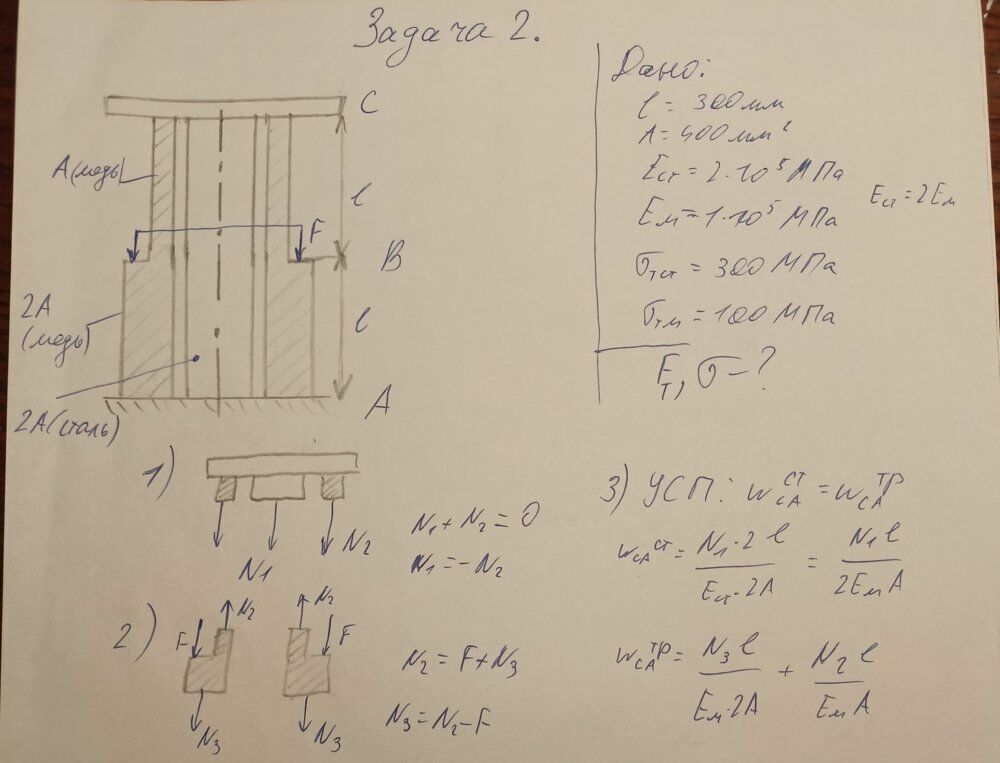 Задача 2.
Дано:
l = 300 мм
A = 400 мм²
Eст = 2·10⁵ МПа
Eм = 1·10⁵ МПа
Eст = 2Eм
σтст = 300 МПа
σтм = 100 МПа
Fт, σ - ?
C
A (медь)
l
F
B
2A
(медь)
l
A
2A (сталь)
1)
N1
N2
N₁ + N₂ = 0
N₁ = -N₂
2)
F
N₂
N₂
F
N₃
N₃
N₂ = F + N₃
N₃ = N₂ - F
3) УСП: wCAст = wCAтр
wCAст = N₁·2l / Eст·2A = N₁l / 2EмA
wCAтр = N₃l / Eм·2A + N₂l / EмA